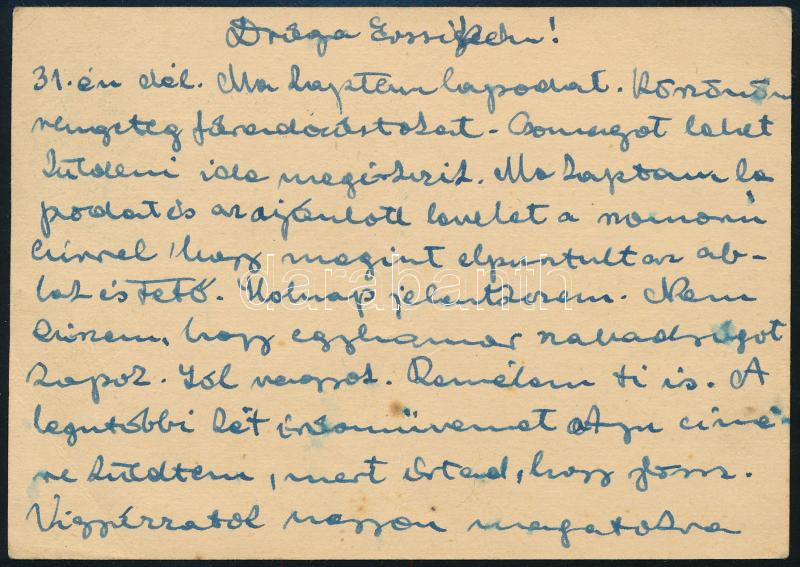 Drága Erssikém!
31.-én dél. Ma kaptam lapodat. Köszönöm
rengeteg fáradozástokat - Csomagot lehet
küldeni ide megérkezik. Ma kaptam la
podat és az ajánlott levelet a szomorú
hírrel, hogy megint elpusztult az ab-
lak és tető. Holnap jelentkezem. Nem
hiszem, hogy egyhamar szabadságot
kapok. Jól vagyok. Remélem ti is. A
legutóbbi két írásművemet címé
re küldtem, mert írtad, hogy jössz.
nagyon magatokra
darabanth